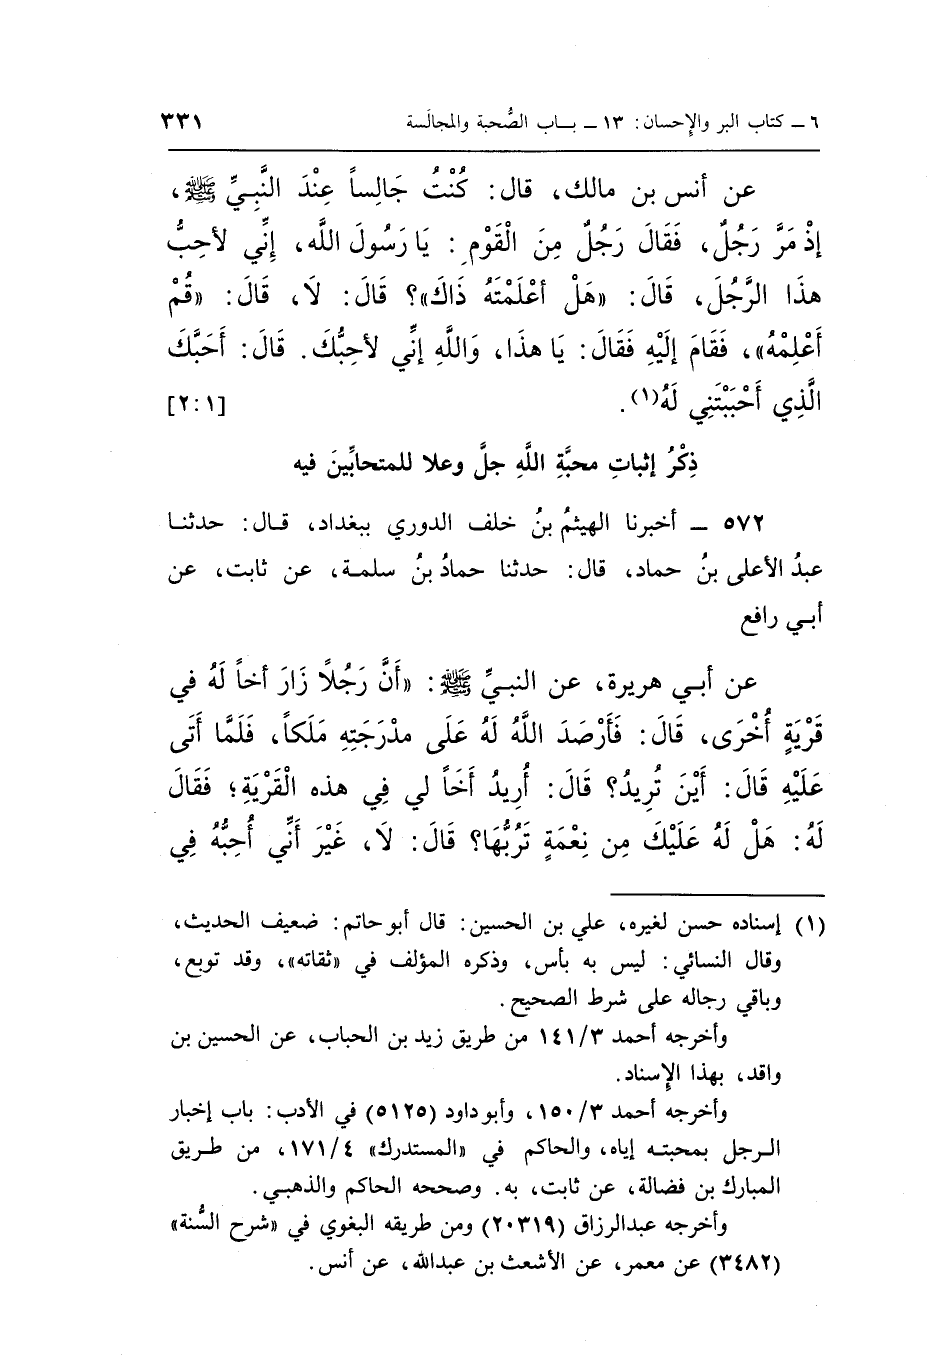 ٦ ـ كتاب البر والإحسان: ١٣ ـ بـاب الصُّحبة والمجالَسة ٣٣١
عن أنس بن مالك، قال: كُنْتُ جَالِساً عِنْدَ النَّبِيِّ ﷺ،
إذْ مَرَّ رَجُلٌ، فَقَالَ رَجُلٌ مِنَ الْقَوْمِ: يَا رَسُولَ اللَّه، إِنِّي لأحِبُّ
هذَا الرَّجُلَ، قَالَ: «هَلْ أعْلَمْتَهُ ذَاكَ»؟ قَالَ: لَا، قَالَ: «قُمْ
أَعْلِمْهُ»، فَقَامَ إلَيْهِ فَقَالَ: يَا هذَا، وَاللَّهِ إنِّي لأحِبُّكَ. قَالَ: أَحَبَّكَ
الَّذِي أَحْبَبْتَنِي لَهُ(١). [٢:١]
ذِكْرُ إثباتِ محبَّةِ اللَّهِ جلَّ وعلا للمتحابِّينَ فيه
٥٧٢ ـ أخبرنا الهيثمُ بنُ خلف الدوري ببغداد، قـال: حدثنـا
عبدُ الأعلى بنُ حماد، قال: حدثنا حمادُ بنُ سلمـة، عن ثابت، عن
أبـي رافع
عن أبـي هريرة، عن النبـيِّ ﷺ: «أَنَّ رَجُلًا زَارَ أخاً لَهُ في
قَرْيَةٍ أُخْرَى، قَالَ: فَأَرْصَدَ اللَّهُ لَهُ عَلَى مدْرَجَتِهِ مَلَكاً، فَلَمَّا أَتَى
عَلَيْهِ قَالَ: أَيْنَ تُرِيدُ؟ قَالَ: أُرِيدُ أَخَاً لي فِي هذه الْقَرْيَةِ؛ فَقَالَ
لَهُ: هَلْ لَهُ عَلَيْكَ مِن نِعْمَةٍ تَرُبُّهَا؟ قَالَ: لَا، غَيْرَ أَنِّي أُحِبُّهُ فِي
(١) إسناده حسن لغيره، علي بن الحسين: قال أبو حاتم: ضعيف الحديث،
وقال النسائي: ليس به بأس، وذكره المؤلف في «ثقاته»، وقد توبع،
وباقي رجاله على شرط الصحيح.
وأخرجه أحمد ١٤١/٣ من طريق زيد بن الحباب، عن الحسين بن
واقد، بهذا الإسناد.
وأخرجه أحمد ١٥٠/٣، وأبو داود (٥١٢٥) في الأدب: باب إخبار
الـرجل بمحبتـه إياه، والحاكم في «المستدرك» ١٧١/٤، من طـريق
المبارك بن فضالة، عن ثابت، به. وصححه الحاكم والذهبـي.
وأخرجه عبدالرزاق (٢٠٣١٩) ومن طريقه البغوي في «شرح السُّنة»
(٣٤٨٢) عن معمر، عن الأشعث بن عبدالله، عن أنس.